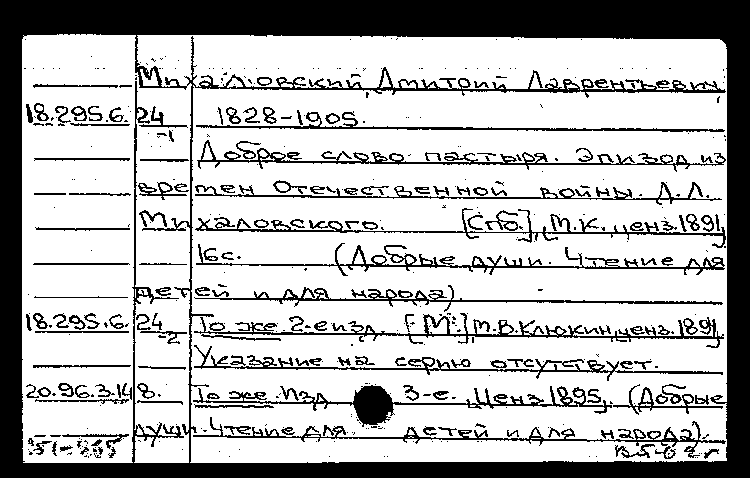 Михаловский, Дмитрий Лаврентьевич,
18.295.6.24-1 1828-1905.
Доброе слово пастыря. Эпизод из
времен Отечественной войны. Д.Л.
Михаловского. [Спб.], М.К., ценз. 1891,
16с. (Добрые души. Чтение для
детей и для народа).
18.295.6.24-2 То же 2-е изд. [М.], М.В. Клюкин, ценз. 1891,
Указание на серию отсутствует.
20.96.3.148. То же. Изд. 3-е. Ценз. 1895. (Добрые
души. Чтение для детей и для народа).
51-865